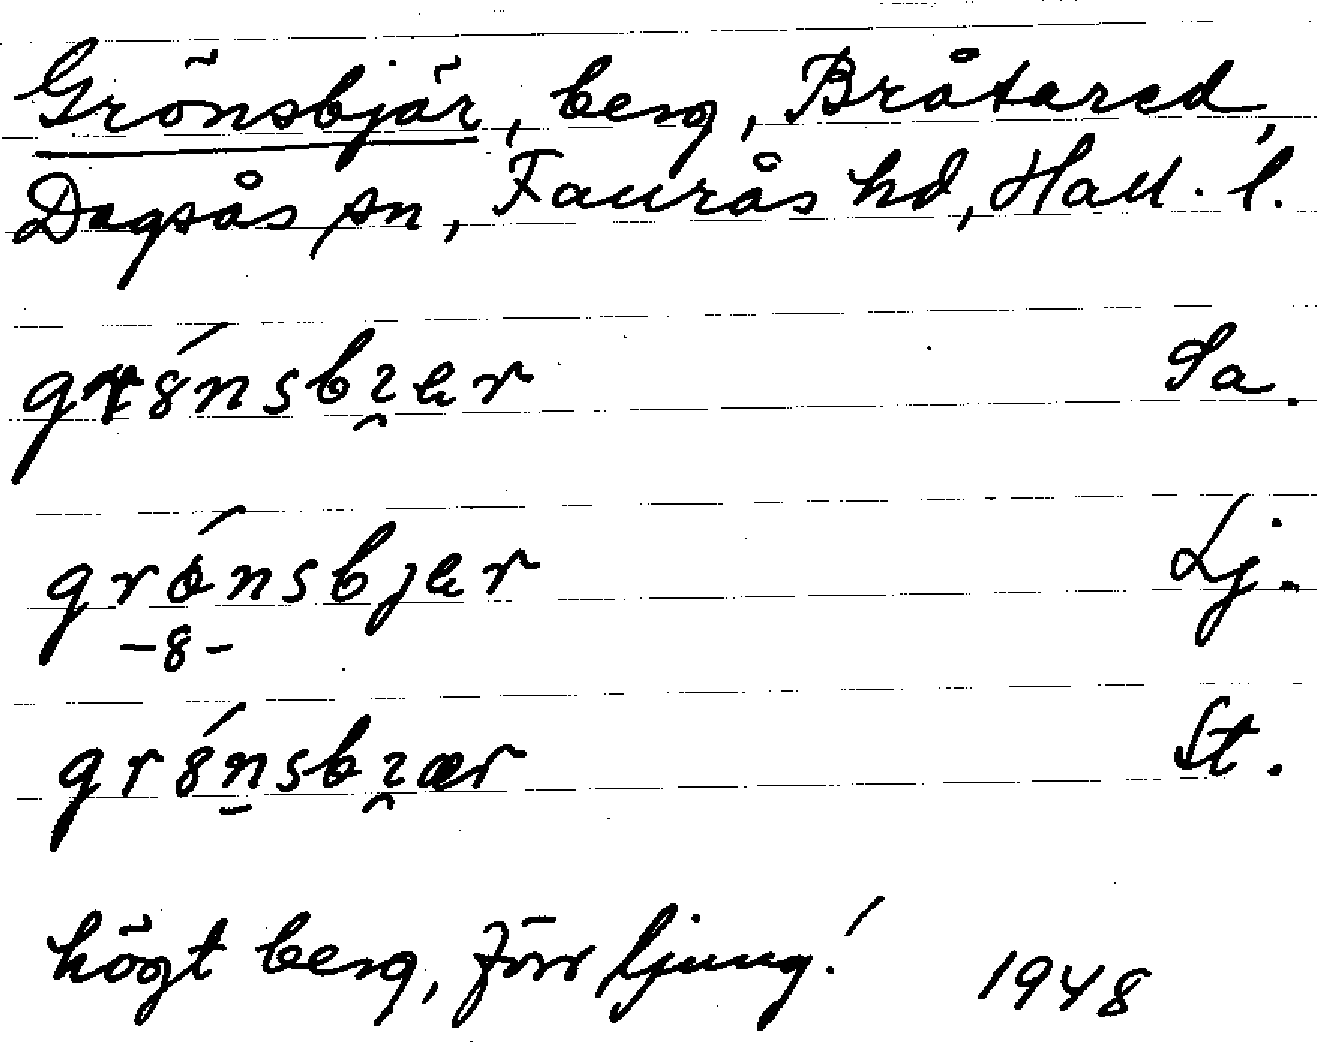 Grönsbjär, berg, Bråtared,
Dagsås sn, Faurås hd, Hall. l.
gr8́nsbɿ̯ær Sa.
grǿnsbjær Lj.
-8-
gr8́n̠sbɿ̯ær St.
högt berg, förr ljung!
1948